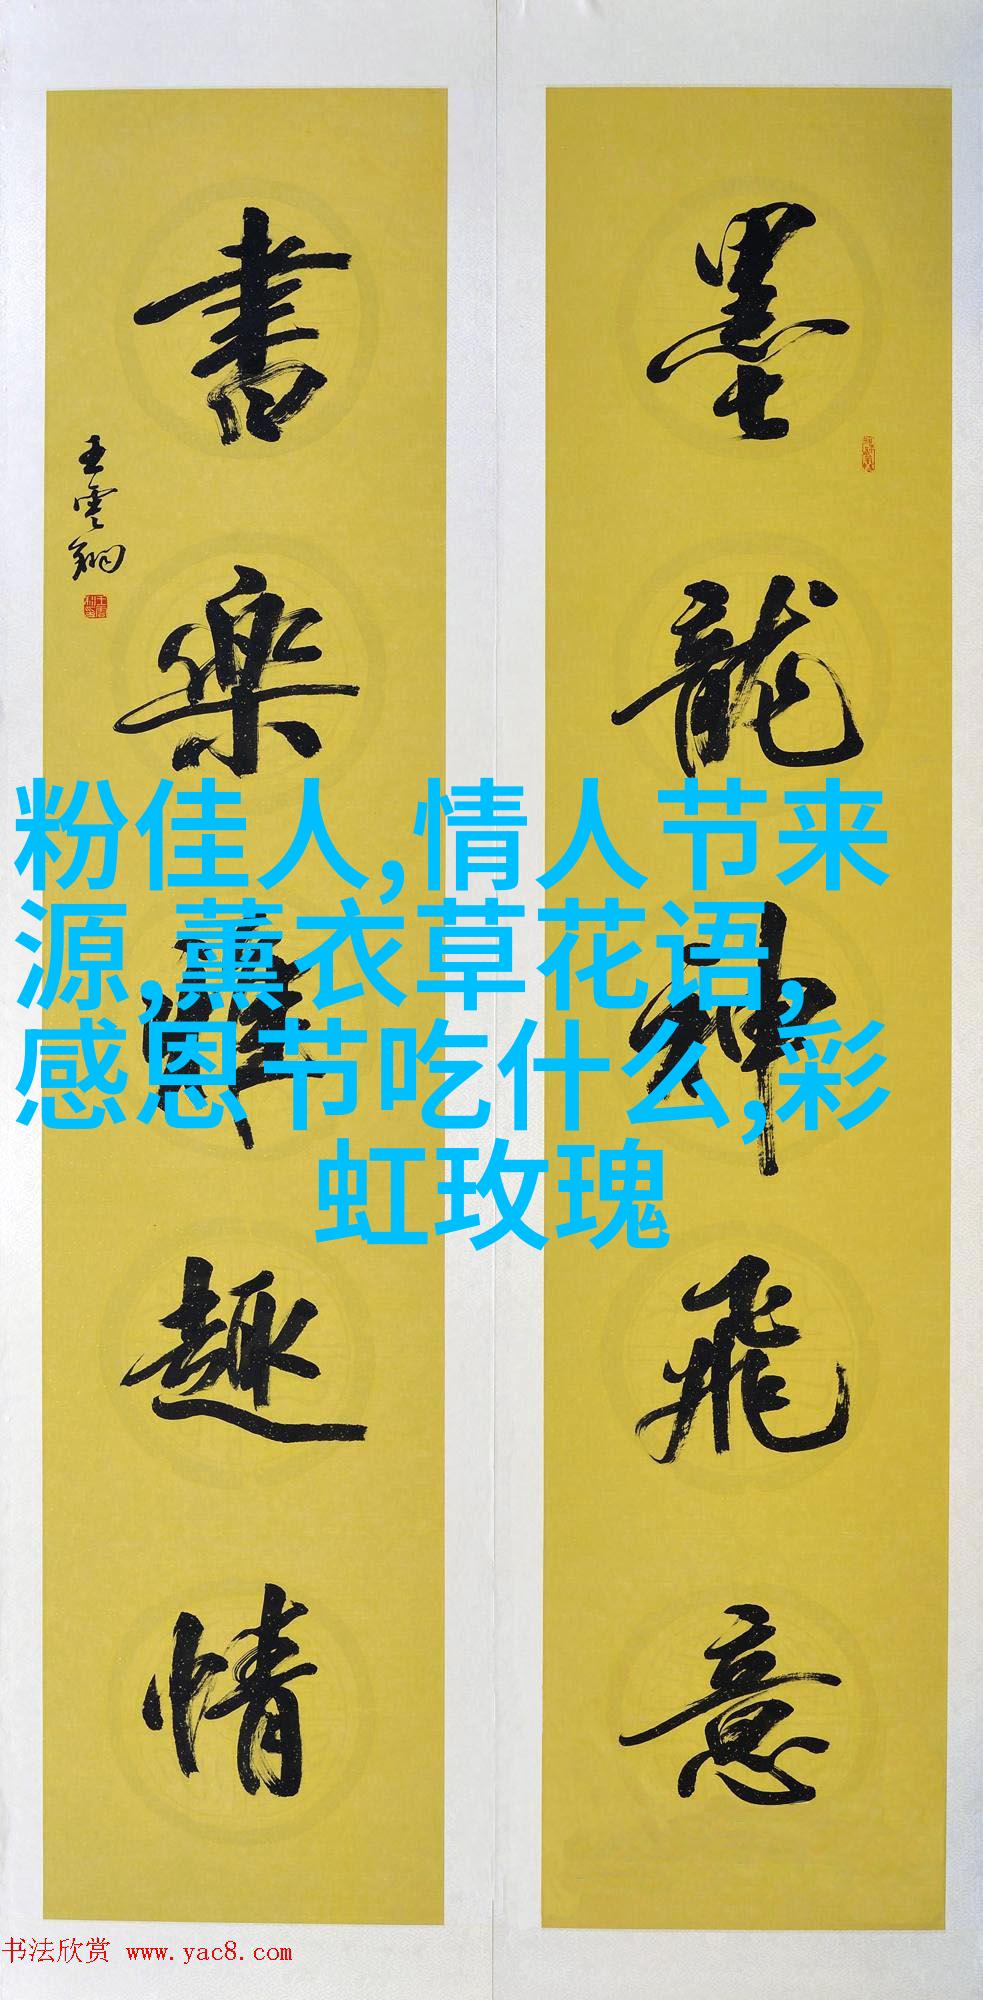 墨龍神飛意
書樂
趣情
王雲翔
粉佳人,情人节来
源,薰衣草花语,
感恩节吃什么,彩
虹玫瑰
书法欣赏 www.yac8.com